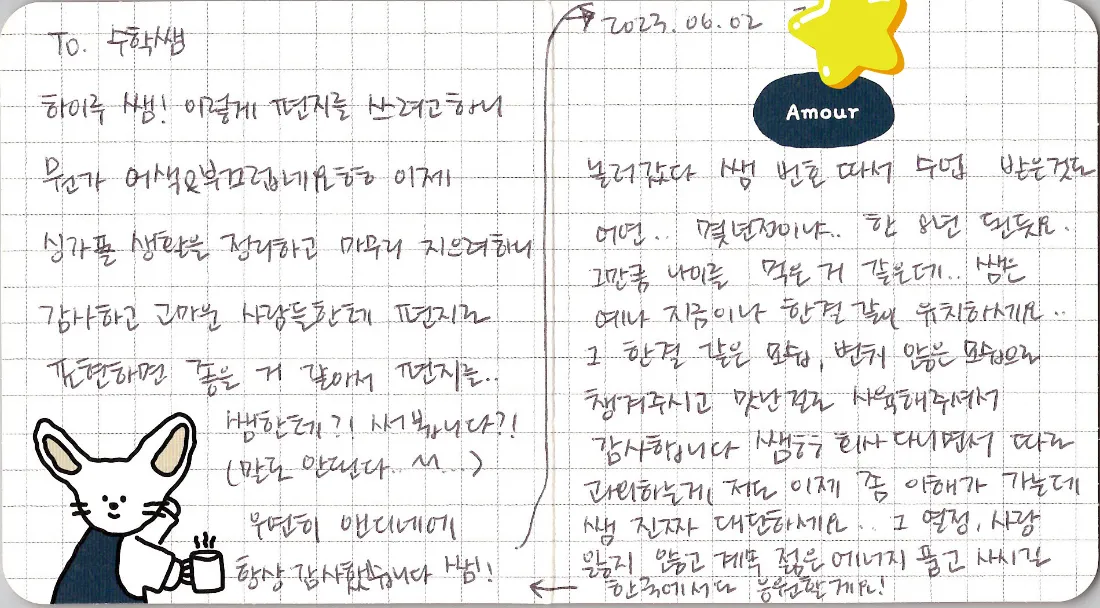 To. 수학쌤
하이루 쌤! 이렇게 편지를 쓰려고하니
뭔가 어색&부끄럽네요ㅎㅎ 이제
싱가폴 생활을 정리하고 마무리 지으려하니
감사하고 고마운 사람들한테 편지로
표현하면 좋을 거 같아서 편지를..
쌤한테?! 써봅니다?!
(말도 안된다..^^..)
우연히 앤디네에
2023.06.02
Amour
놀러갔다 쌤 번호 따서 수업 받은것도
어연.. 몇년전이냐.. 한 8년 된듯요.
그만큼 나이를 먹은 거 같은데.. 쌤은
예나 지금이나 한결 같이 유치하세요..
그 한결 같은 모습, 변치 않은 모습으로
챙겨주시고 맛난걸로 사육해주셔서
감사합니다 쌤ㅎㅎ 회사 다니면서 따로
과외하는게, 저도 이제 좀 이해가 가는데
쌤 진짜 대단하세요.. 그 열정, 사랑
잃지 않고 계속 젊은 에너지 품고 사시길
한국에서도 응원할게요!
항상 감사했습니다 쌤!